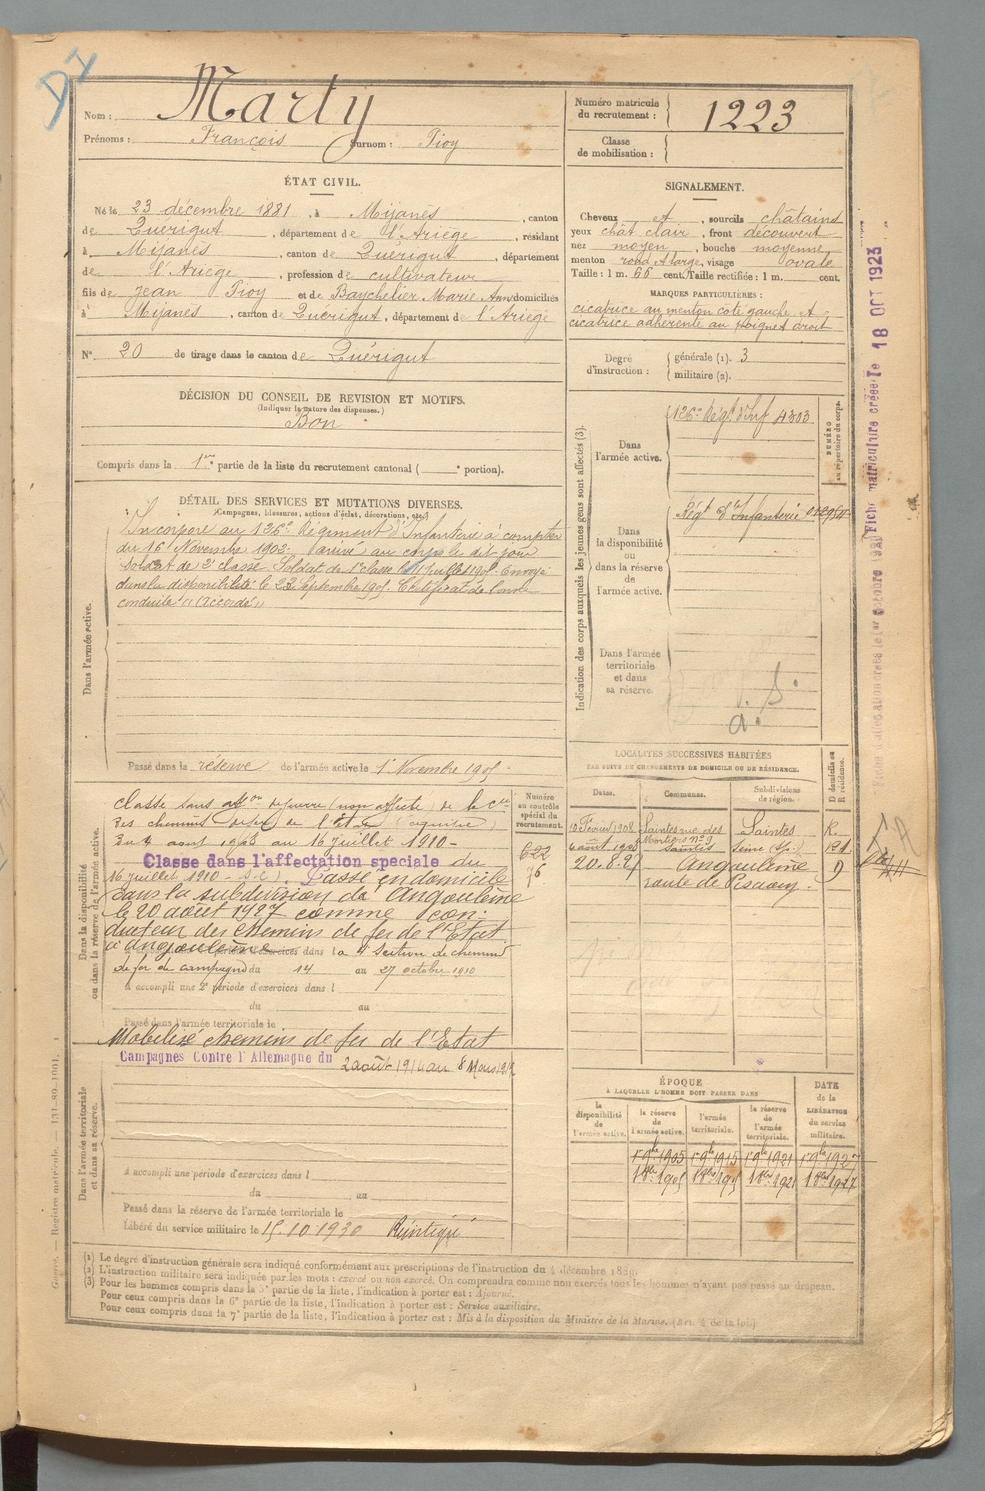 Nom : Marty
Prénoms : François Surnom : Pioy
Numéro matricule
du recrutement : 1223
Classe
de mobilisation :
ÉTAT CIVIL.
Né le 23 décembre 1881, à Mijanès, canton
de Quérigut, département de l'Ariège, résidant
à Mijanès, canton de Quérigut, département
de l'Ariège, profession de cultivateur
fils de Jean Pioy et de Baychelier Marie Anne domiciliés
à Mijanès, canton de Quérigut, département de l'Ariège
N° 20 de tirage dans le canton de Quérigut
SIGNALEMENT.
Cheveux et, sourcils châtains
yeux chât clair, front découvert
nez moyen, bouche moyenne,
menton rond et large, visage ovale
Taille : 1 m. 66 cent. Taille rectifiée : 1 m. cent.
MARQUES PARTICULIÈRES :
cicatrice au menton côté gauche et
cicatrice adhérente au poignet droit
Degré
d'instruction :
générale (1). 3
militaire (2).
DÉCISION DU CONSEIL DE REVISION ET MOTIFS.
(Indiquer la nature des dispenses.)
Bon
Compris dans la 1re partie de la liste du recrutement cantonal ( e portion).
DÉTAIL DES SERVICES ET MUTATIONS DIVERSES.
(Campagnes, blessures, actions d'éclat, décorations, etc.)
Dans l'armée active.
Incorporé au 126e Régiment d'Infanterie à compter
du 16 Novembre 1902. Arrivé au corps le dit jour
Soldat de 2e classe. Soldat de 1e classe le 11 Juillet 1905. Envoyé
dans la disponibilité le 23 Septembre 1905. Certificat de bonne
conduite "Accordé"
Passé dans la réserve de l'armée active le 1er Novembre 1905.
Indication des corps auxquels les jeunes gens sont affectés (3).
Dans
l'armée active.
126e Régt d'Inf 4303
NUMÉRO
au répertoire du corps.
Dans
la disponibilité
ou dans la réserve
de
l'armée active.
Régt d'Infanterie
Dans l'armée
territoriale
et dans
sa réserve.
Dans la disponibilité
ou dans la réserve de l'armée active.
Classé sans affon (non affecté) de la Cie
des chemins de fer de l'état
du 4 août 1908 au 16 juillet 1910-
Classé dans l'affectation speciale du
16 juillet 1910 - Passé en domicile
dans la subdivision de Angoulême
le 20 août 1927 comme con-
ducteur des chemins de fer de l'Etat
à Angoulême dans la 4e Section de chemins
de fer de campagne du 14 au 27 octobre 1910
A accompli une 2e période d'exercices dans l
du au
Passé dans l'armée territoriale le
Mobilisé chemins de fer de l'Etat
Campagnes Contre l'Allemagne du 2 août 1914 au 8 Mars 1919
Numéro
au contrôle
spécial du
recrutement.
622
76
LOCALITÉS SUCCESSIVES HABITÉES
PAR SUITE DE CHANGEMENTS DE DOMICILE OU DE RÉSIDENCE.
Dates. Communes. Subdivisions de région. D domicile ou R résidence.
10 Février 1908 Saintes rue des Saintes R.
Mortiers n° 9
4 août 1908 Saintes
20.8.27 Angoulême D
route de
Dans l'armée territoriale
et dans sa réserve.
A accompli une période d'exercices dans l
du au
Passé dans la réserve de l'armée territoriale le
Libéré du service militaire le 15.10.1930
ÉPOQUE
À LAQUELLE L'HOMME DOIT PASSER DANS
la disponibilité de l'armée active. la réserve de l'armée active. l'armée territoriale. la réserve de l'armée territoriale. DATE de la LIBÉRATION du service militaire.
1er 9bre 1905 1er 9bre 1915 1er 9bre 1921 1er 9bre 1927
(1) Le degré d'instruction générale sera indiqué conformément aux prescriptions de l'instruction du 4 décembre 1889.
(2) L'instruction militaire sera indiquée par les mots : exercé ou non exercé. On comprendra comme non exercés tous les hommes n'ayant pas passé au drapeau.
(3) Pour les hommes compris dans la 5e partie de la liste, l'indication à porter est : Ajourné.
Pour ceux compris dans la 6e partie de la liste, l'indication à porter est : Service auxiliaire.
Pour ceux compris dans la 7e partie de la liste, l'indication à porter est : Mis à la disposition du Ministre de la Marine. (Art. 4 de la loi.)
Fiche matriculaire créée le 18 OCT 1923